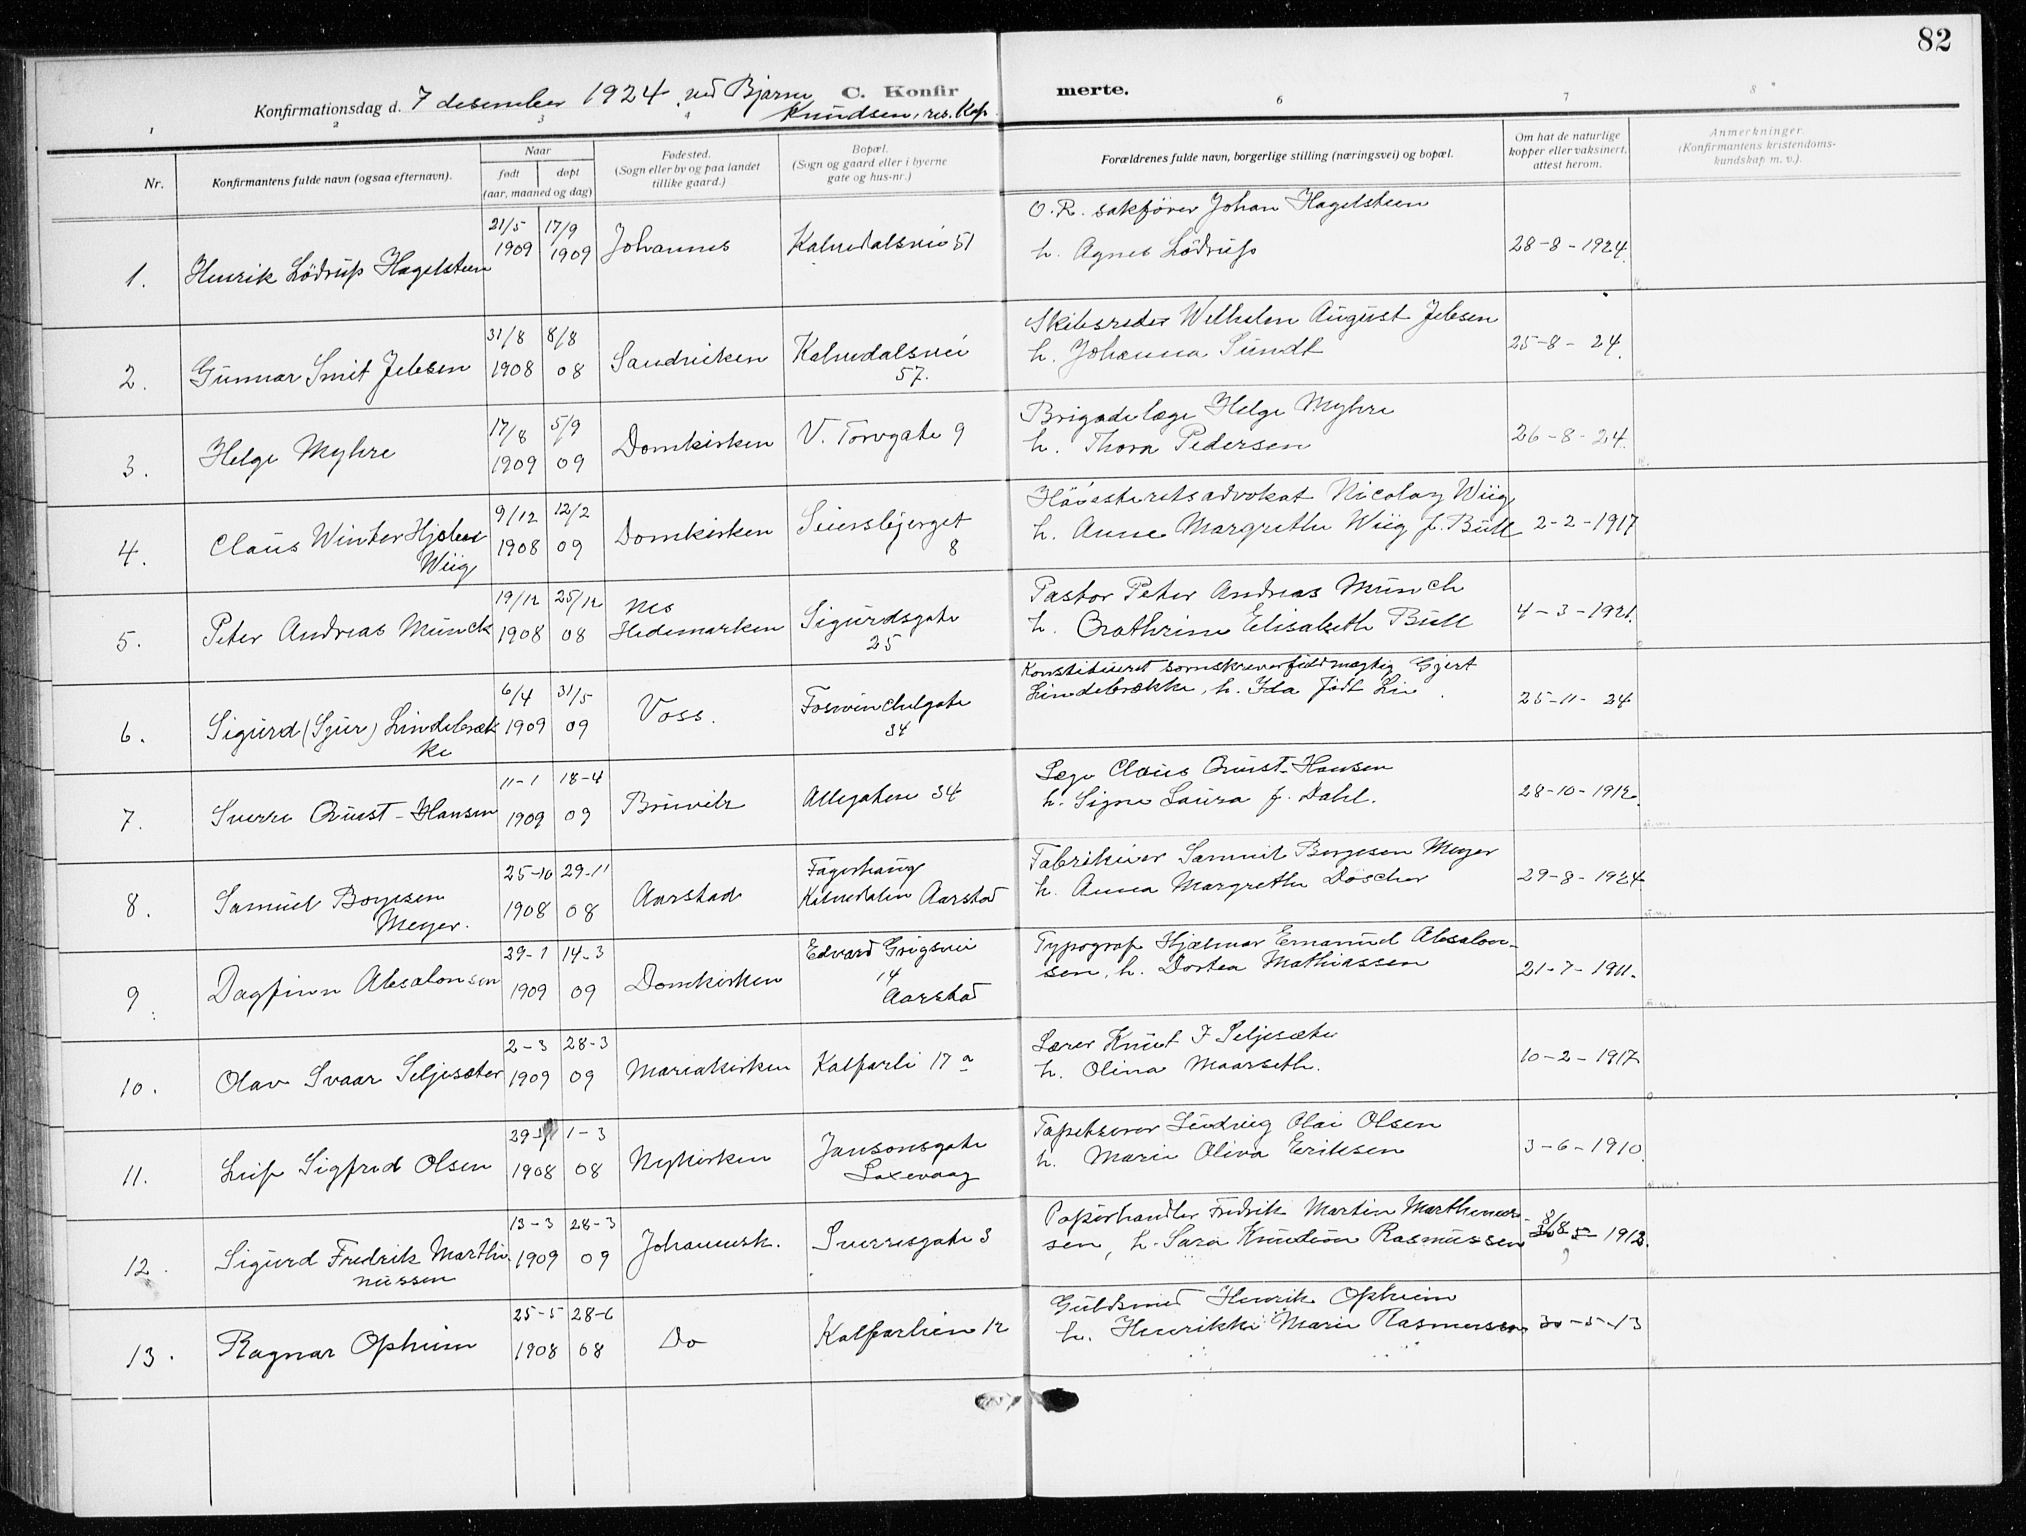 82
Konfirmationsdag d. 7 desember 1924 ved Bjarne
Knudsen, res. Kap.
C. Konfirmerte.
1 2 3 4 6 7 8
Nr.
Konfirmantens fulde navn (ogsaa efternavn).
Naar
født døpt
(aar, maaned og dag)
Fødested.
(Sogn eller by og paa landet
tillike gaard.)
Bopæl.
(Sogn og gaard eller i byerne
gate og hus-nr.)
Forældrenes fulde navn, borgerlige stilling (næringsvei) og bopæl.
Om hat de naturlige
kopper eller vaksinert,
attest herom.
Anmerkninger.
(Konfirmantens kristendoms-
kundskap m. v.).
1. Henrik Lödrup Hagelsteen
21/5 1909
17/9 1909
Johannes
Kalvedalsvei 51
O.R. sakfører Johan Hagelsteen
h. Agnes Lödrup
28-8-1924.
2. Gunnar Smit Jebsen
31/8 1908
8/8 08
Sandviken
Kalvedalsvei
57.
Skibsreder Wilhelm August Jebsen
h. Johanna Sundt
25-8-24.
3. Helge Myhre
17/8 1909
5/9 09
Domkirken
V. Torvgate 9
Brigadelæge Helge Myhre
h. Thora Pedersen
26-8-24.
4. Claus Winter
Wiig
9/12 1908
12/2 09
Domkirken
Seiersbjerget
8
Høiesteretsadvokat Nicolay Wiig
h. Anne Margrethe Wiig f. Bull
2-2-1917
5. Peter Andreas Munch
19/12 1908
25/12 08
Nes
Hedemarken
Sigurdsgate
25
Pastor Peter Andreas Munch
h. Cathrine Elisabeth Bull
4-3-1921.
6. Sigurd (Sjur) Lindebræk
ke
6/4 1909
31/5 09
Voss.
Fosswinckelgate
34
Konstitueret sorenskriverfuldmægtig Gjert
Lindebrække, h. Ida født Lie
25-11-24
7. Sverre Qvist-Hansen
11-1 1909
18-4 09
Bruvik
Allegaten 34
Læge Claus Qvist-Hansen
h. Signe Laura f. Dahl.
28-10-1912.
8. Samuel Borgesen
Meyer.
25-10 1908
29-11 08
Aarstad
Fagerhaug
Kalvedalen Aarstad
Fabrikeier Samuel Borgesen Meyer
h. Anna Margrethe Döscher
29-8-1924
9. Dagfinn Absalonsen
29-1 1909
14-3 09
Domkirken
Edvard Griegsvei
14
Aarstad
Typograf Hjalmar Emanuel Absalon-
sen, h. Dortea Mathiassen
21-7-1911.
10. Olav Svaar Seljesæter
2-3 1909
28-3 09
Mariakirken
Kalfarli 17 a
Lærer Knut I Seljesæter
h. Olina Maarseth.
10-2-1917
11. Leif Sigfred Olsen
29-1 1908
1-3 08
Nykirken
Jansonsgate
Laxevaag
Tapetserer Ludvig Olai Olsen
h. Marie Oliva Eriksen
3-6-1910.
12. Sigurd Fredrik Marthi
nussen
13-3 1909
28-3 09
Johannesk.
Sverresgate 3
Papirhandler Fredrik Martin Marthinus-
sen, h. Sara Rasmussen
1913.
13. Ragnar Opheim
25-5 1908
28-6 08
Do
Kalfarlien 12
Guldsmed Henrik Opheim
h. Henrikke Marie Rasmussen
30-5-13